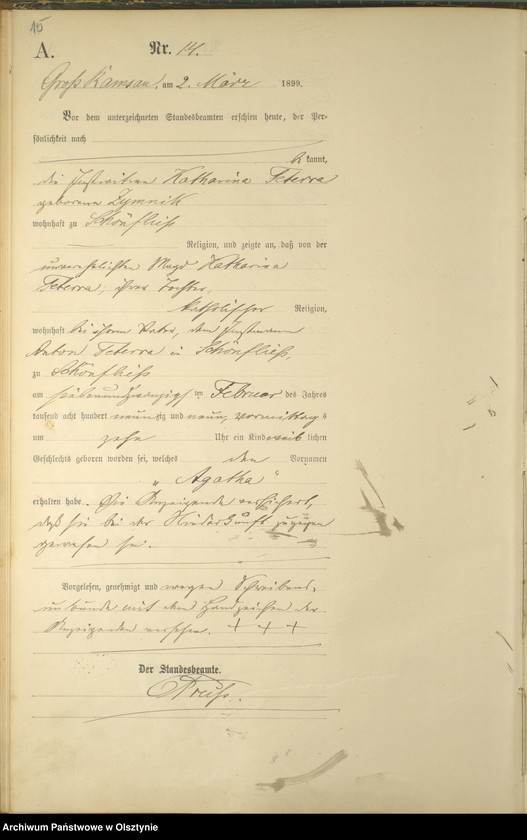 15
A. Nr. 14.
Groß Kamsau, am 2. März 1899.
Vor dem unterzeichneten Standesbeamten erschien heute, der Per-
sönlichkeit nach
be kannt,
die Katharina Teterra
geborene Zymnik
wohnhaft zu Schönfließ
Religion, und zeigte an, daß von der
unverehelichten Magd Katharina
Teterra, ihrer Tochter,
katholischer Religion,
wohnhaft bei ihrem Vater, dem Instmann
Anton Teterra in Schönfließ,
zu Schönfließ
am siebenundzwanzigsten Februar des Jahres
tausend acht hundert neunzig und neun, Vormittags
um zehn Uhr ein Kind weib lichen
Geschlechts geboren worden sei, welches den Vornamen
„Agatha“
erhalten habe. Die Anzeigende versichert,
daß sie bei der Niederkunft zugegen
gewesen sei.
Vorgelesen, genehmigt und wegen Schreibens-
unkunde mit dem Handzeichen der
Anzeigenden versehen. + + +
Der Standesbeamte.
Preuß.
Archiwum Państwowe w Olsztynie